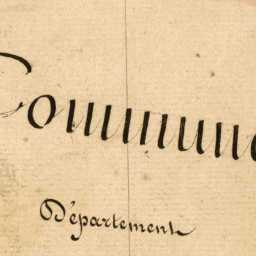 Commune
Département